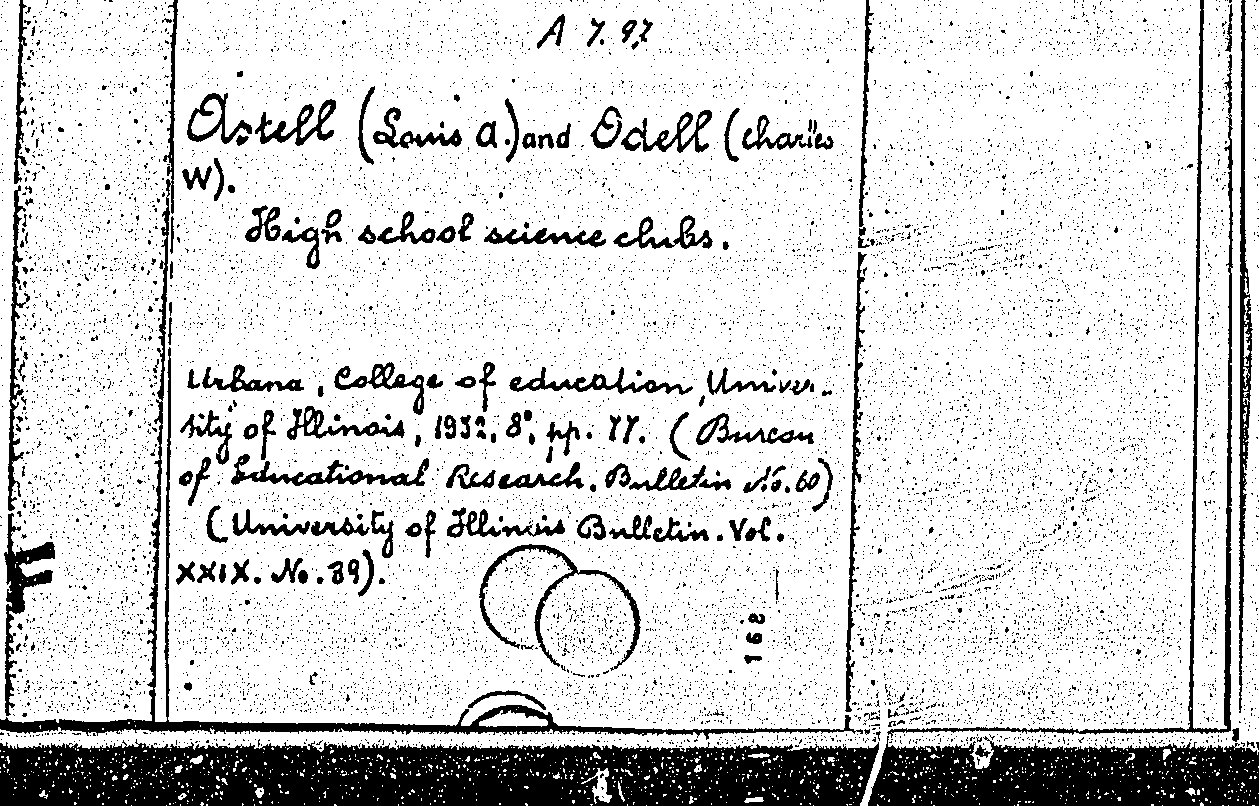 A 7. 97
Astell (Louis A.) and Odell (Charles
W).
High school science clubs.
Urbana, College of education, Univer-
sity of Illinois, 1932, 8°, pp. 77. (Bureau
of Educational Research. Bulletin No. 60)
(University of Illinois Bulletin. Vol.
XXIX. No. 39).
162